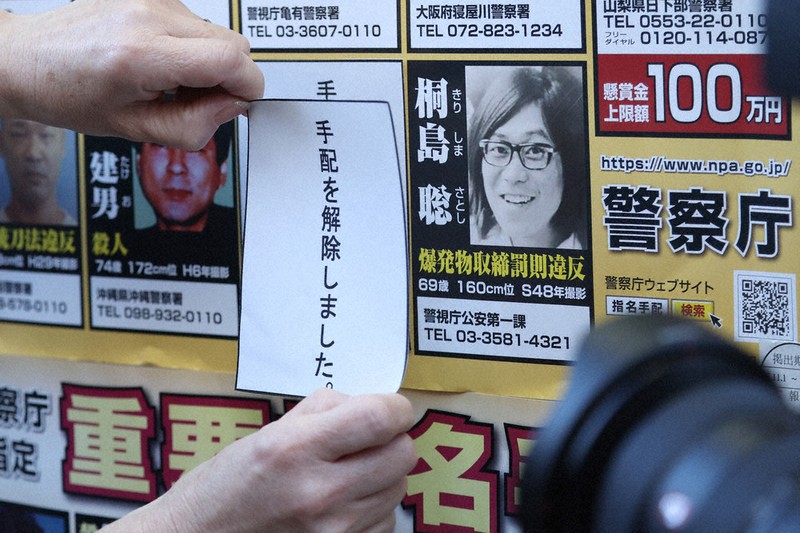 警視庁亀有警察署
TEL 03-3607-0110
大阪府寝屋川警察署
TEL 072-823-1234
山梨県日下部警察署
TEL 0553-22-0110
フリーダイヤル 0120-114-087
懸賞金
上限額
100万円
https://www.npa.go.jp/
警察庁
警察庁ウェブサイト
指名手配 検索
建男
たけ お
殺人
74歳 172cm位 H6年撮影
沖縄県沖縄警察署
TEL 098-932-0110
刀法違反
H29年撮影
手
手配を解除しました。
桐島 聡
きり しま さとし
爆発物取締罰則違反
69歳 160cm位 S48年撮影
警視庁公安第一課
TEL 03-3581-4321
察庁
指定
重要
名